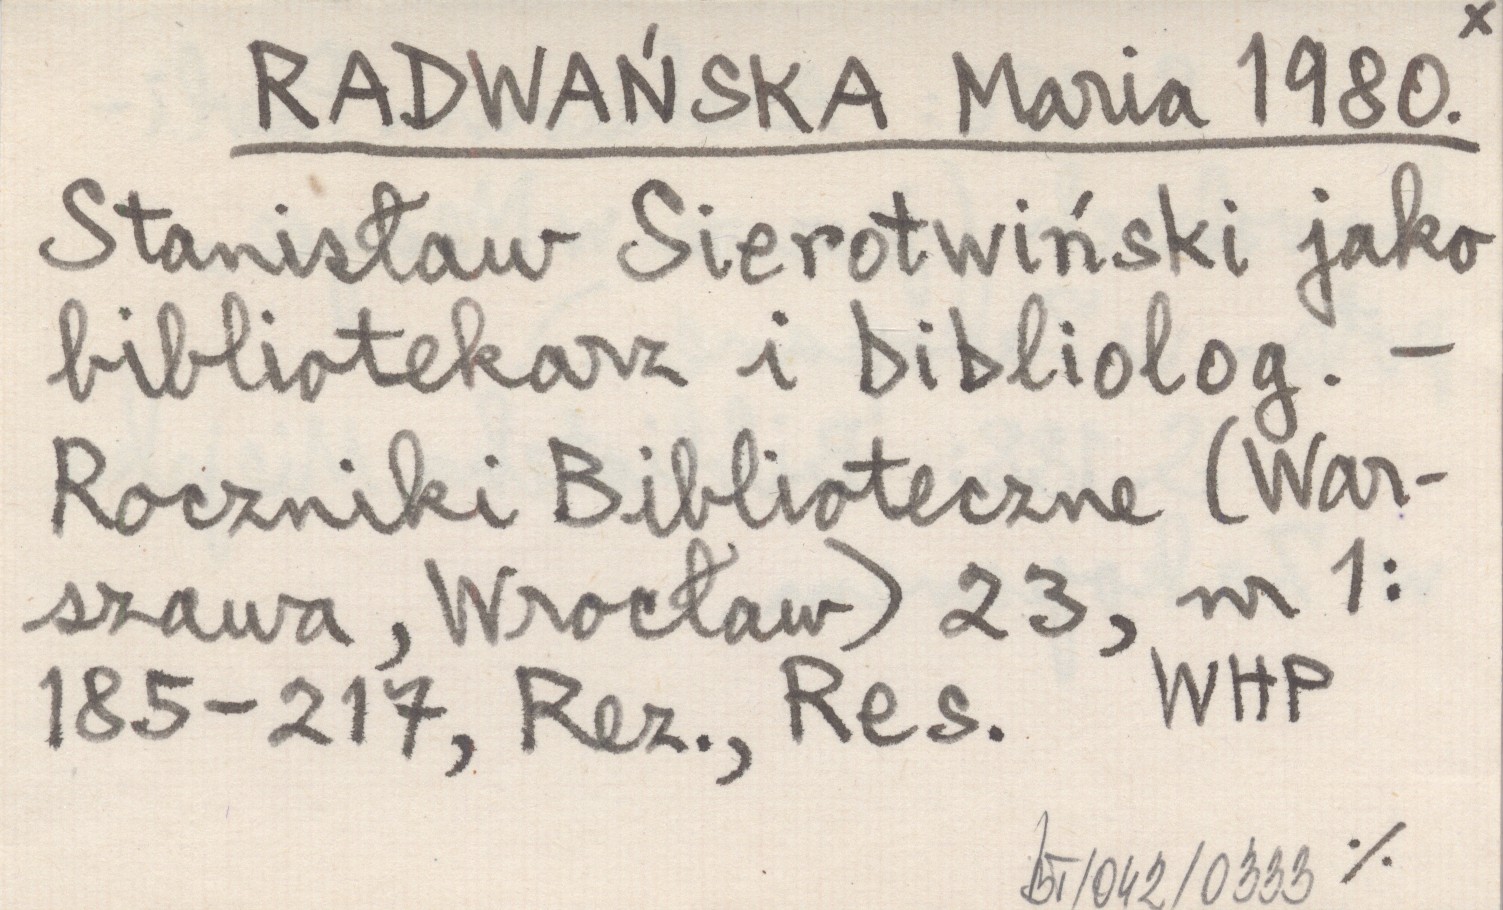 RADWAŃSKA Maria 1980.x
Stanisław Sierotwiński jako
bibliotekarz i bibliolog. –
Roczniki Biblioteczne (War-
szawa, Wrocław) 23, nr 1:
185–217, Rez., Res. WHP
BT/042/0333 ./.